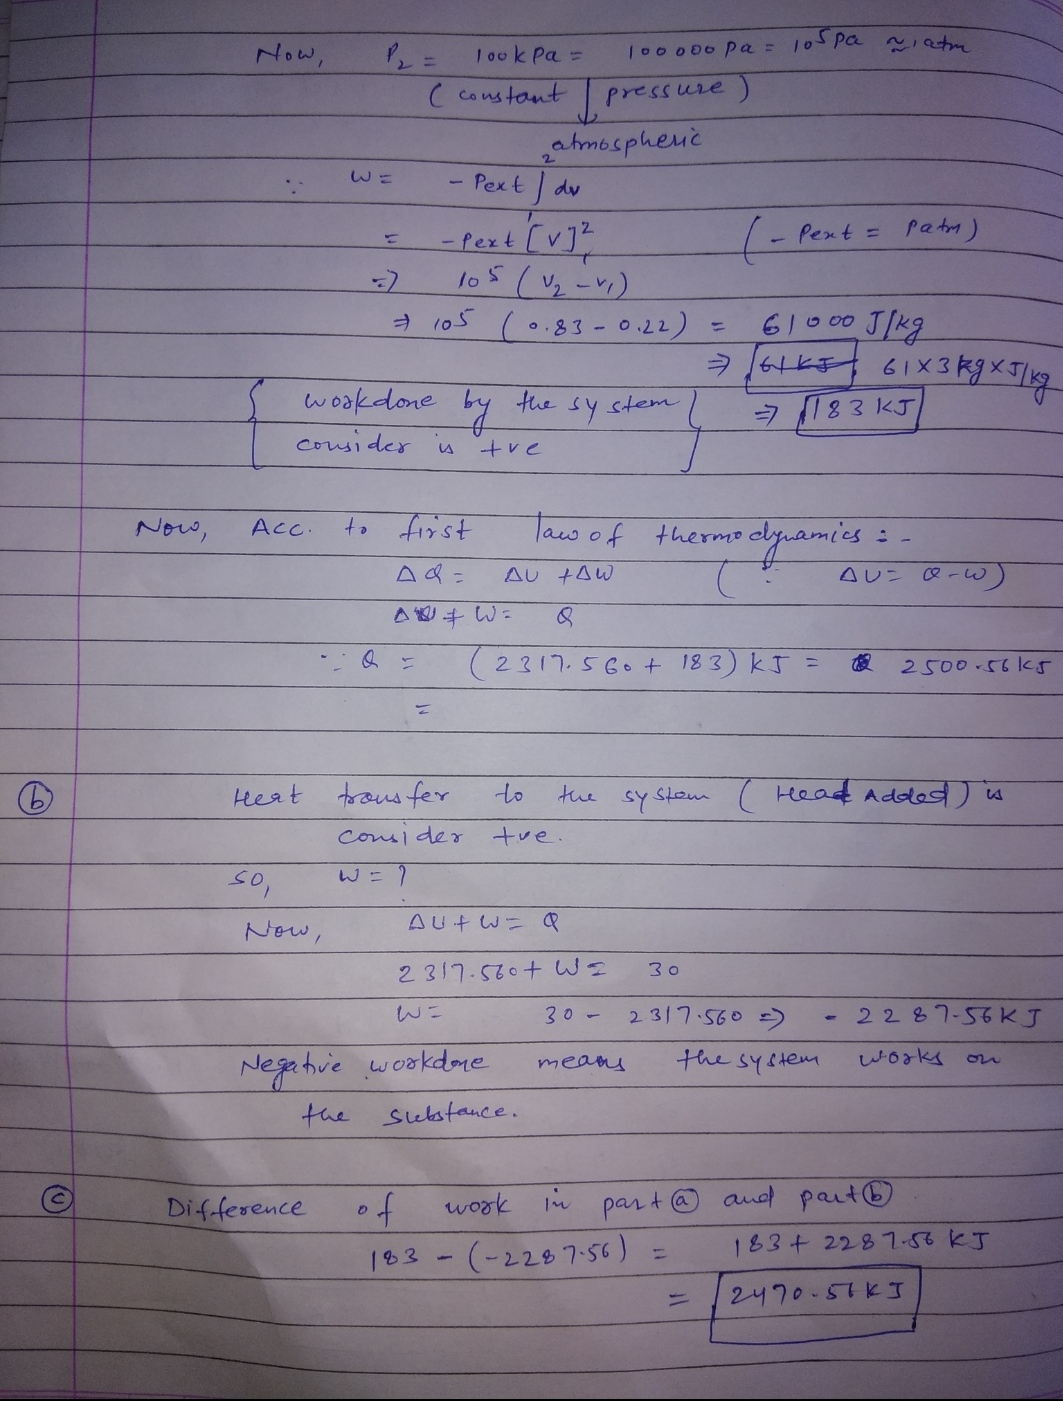 Now, P₂ = 100kPa = 100000 Pa = 10⁵ Pa ≈ 1 atm
( constant ↓ pressure )
atmospheric
∵ W = - Pext ∫₁² dv
= - Pext [V]₁² ( - Pext = Patm)
⇒ 10⁵ ( V₂ - V₁)
⇒ 10⁵ ( 0.83 - 0.22) = 61000 J/kg
⇒ 61 KJ 61 x 3 kg x J/kg
{ workdone by the system } ⇒ 183 KJ
consider is +ve
Now, Acc. to first law of thermodynamics :-
ΔQ = ΔU + ΔW ( ∵ ΔU = Q - W)
ΔU + W = Q
∵ Q = (2317.560 + 183) KJ = 2500.56 KJ
=
(b) Heat transfer to the system ( Head Added) is
consider +ve.
SO, W = ?
Now, ΔU + W = Q
2317.560 + W = 30
W = 30 - 2317.560 ⇒ - 2287.56 KJ
Negative workdone means the system works on
the substance.
(c) Difference of work in part (a) and part (b)
183 - (-2287.56) = 183 + 2287.56 KJ
= 2470.56 KJ